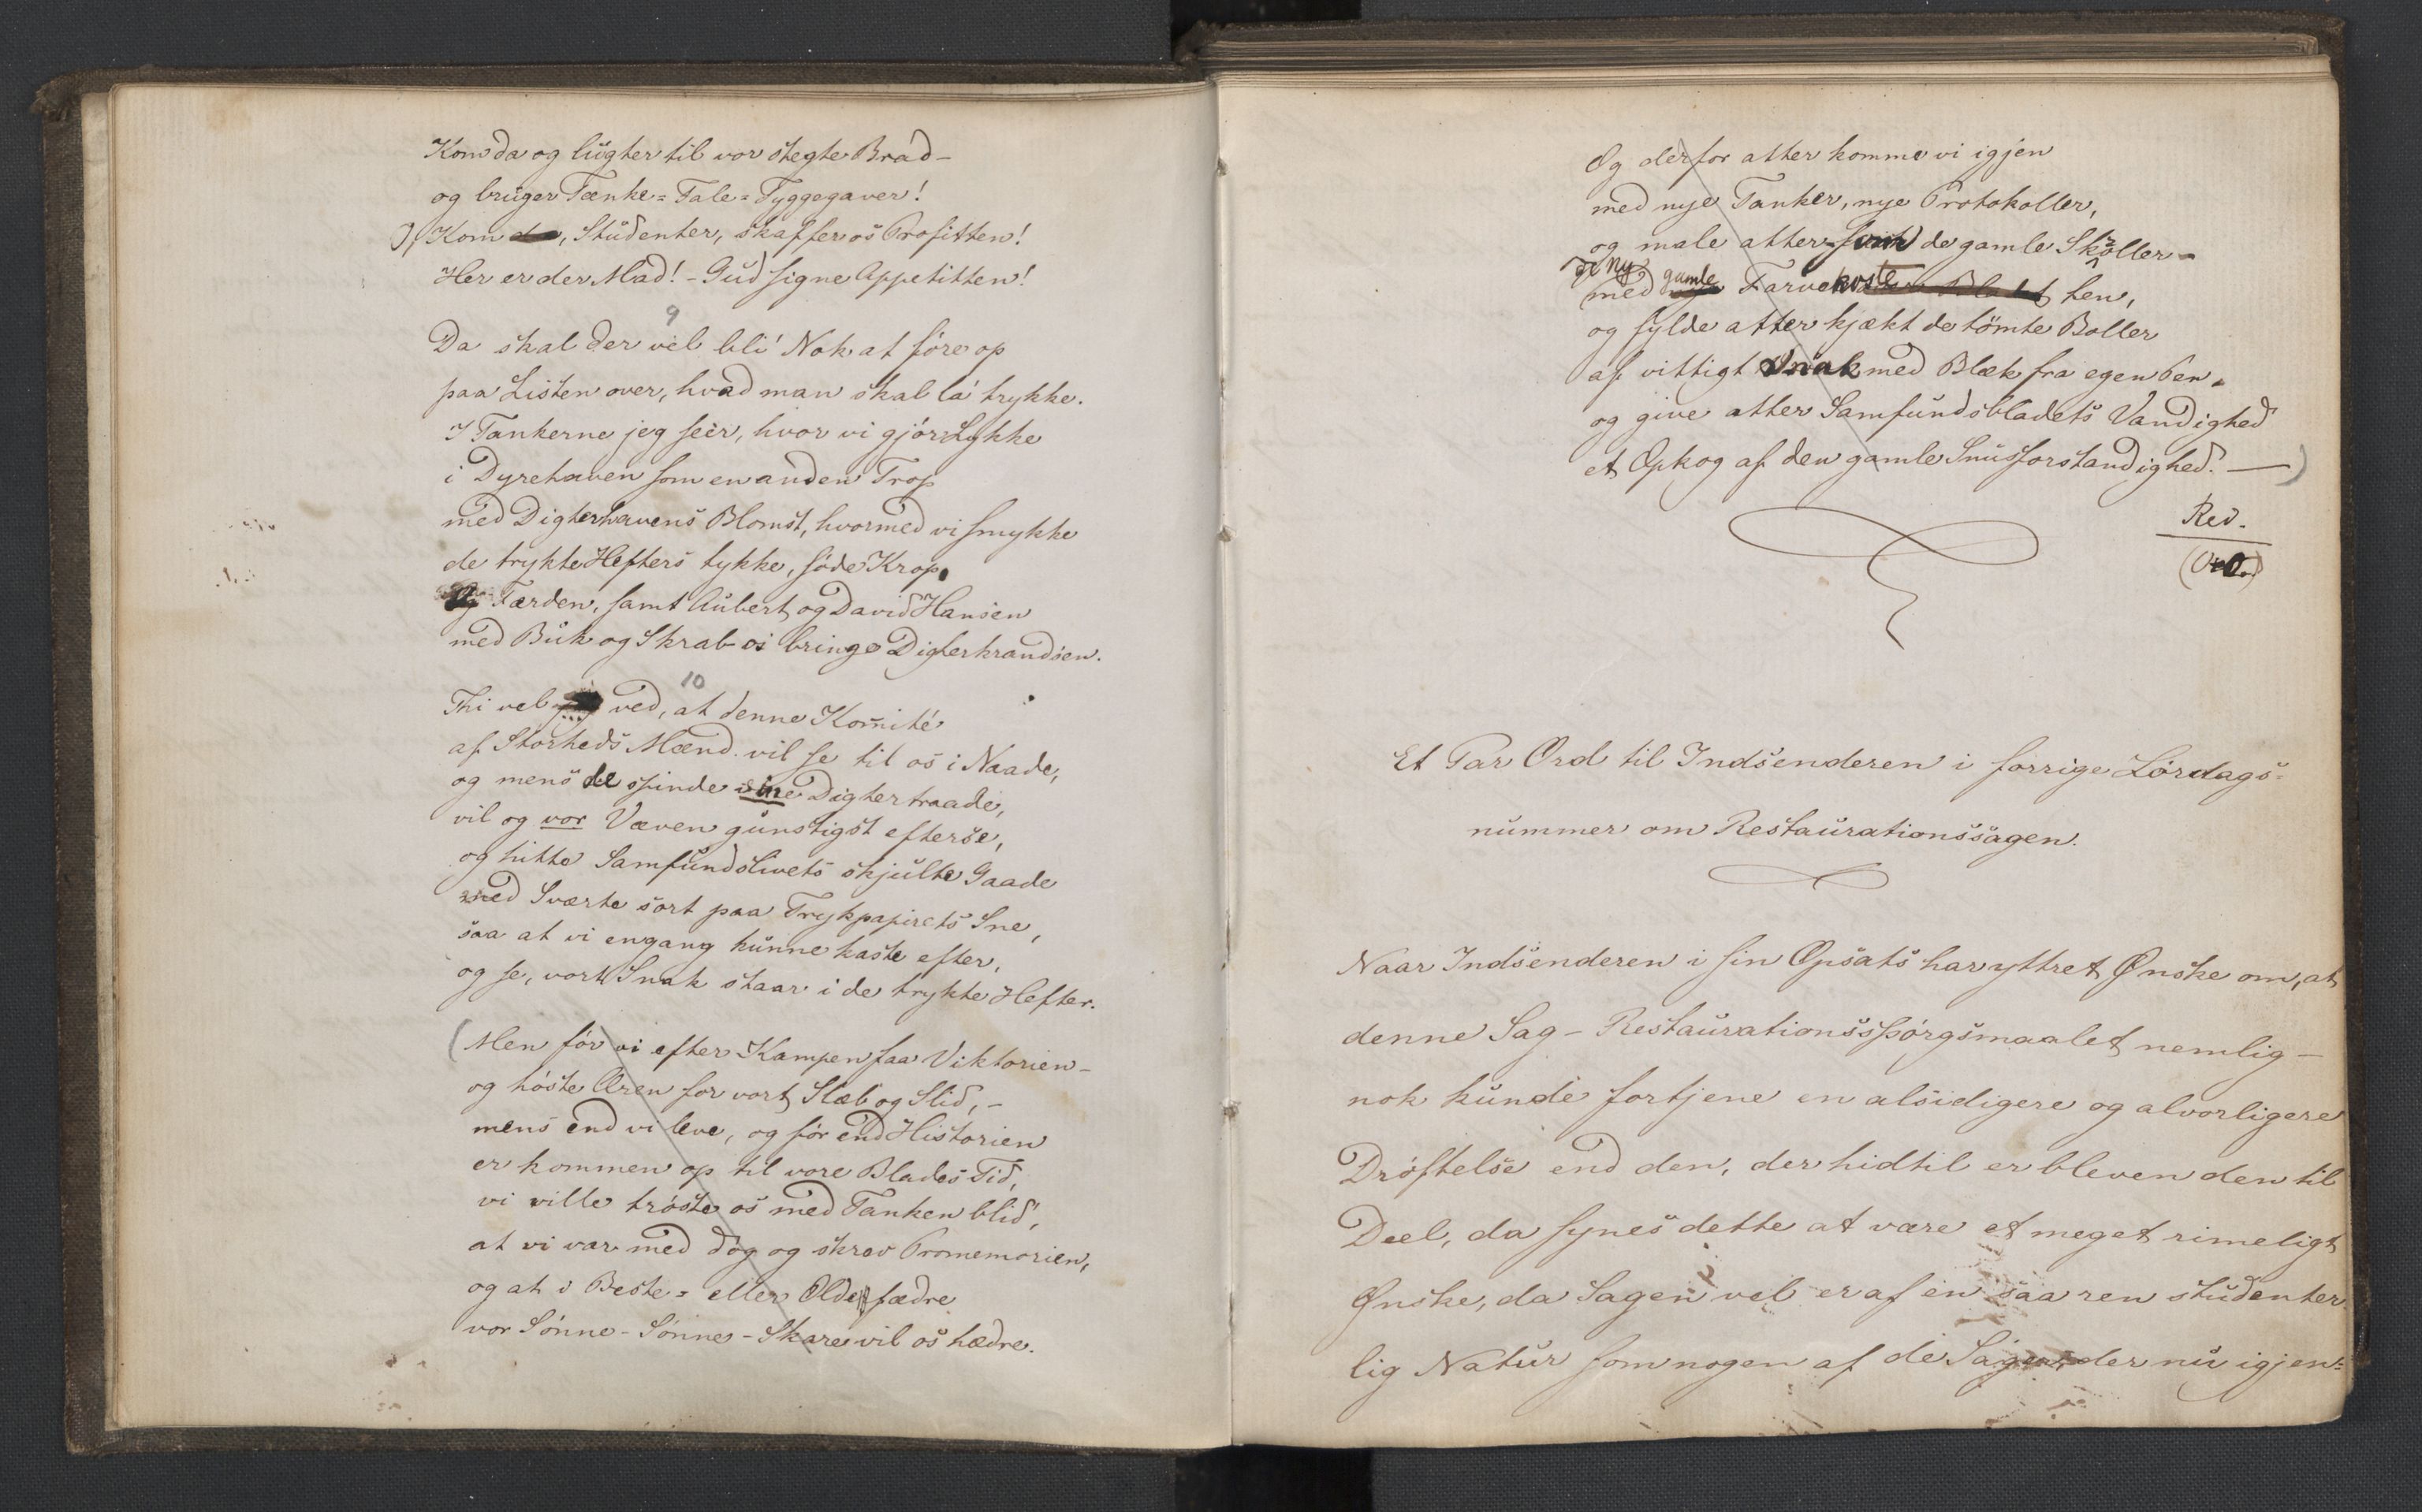 Kom da og lugter til vor stegte Brad –
og bruger Tænke= Tale= Tyggegaver!
O, Kom da, Studenter, skaffer os Profitten!
Her er der Mad! – Gud signe Appetitten!
9
Da skal der vel bli' Nok at føre op
paa Listen over, hvad man skal la' trykke.
I Tankerne jeg seer, hvor vi gjør Lykke
i Dyrehaven som en anden Trop
med Digterhavens Blomst, hvormed vi smykke
de trykte Hefters tykke, søde Krop.
Og Færden, samt Aubert og David Hansen
med Buk og Skrab os bringe Digterkrandsen.
10
Thi vel jeg ved, at denne Komité
af Storheds Mænd vil se til os i Naade,
og mens de spinde sine Digtertraade,
vil og vor Væven gunstigst efterse,
og hitte Samfundslivets skjulte Gaade
med Sværte sort paa Trykpapirets Sne,
saa at vi engang kunne kaste efter,
og se, vort Snak staar i de trykte Hefter.
(Men før vi efter Kampen faa Viktorien –
og høste Æren for vort Slæb og Slid, –
mens end vi leve, og før end Historien
er kommen op til vore Blades Tid,
vi ville trøste os med Tanken blid,
at vi var med dog og skrev Promemorien,
og at i Beste= eller Oldefædre
vor Sønne-Sønnes-Skare vil os hædre.
Og derfor atter komme vi igjen
med nye Tanker, nye Protokoller,
og male atter de gamle Skroller –
de ny
med gamle Farvekoste hen,
og fylde atter kjækt de tömte Boller
af vittigt Snak med Blæk fra egen Pen,
og give atter Samfundsbladets Vandighed
et Opkog af den gamle Snusforstandighed. —)
Red.
Et Par Ord til Indsenderen i forrige Lørdags=
nummer om Restaurationssagen.
Naar Indsenderen i sin Opsats har yttret Ønske om, at
denne Sag – Restaurationsspørgsmaalet nemlig –
nok kunde fortjene en alsidigere og alvorligere
Drøftelse end den, der hidtil er bleven den til
Deel, da synes dette at være et meget rimeligt
Ønske, da Sagen vel er af en saa ren studenter
lig Natur som nogen af de Sager, der nu igjen=